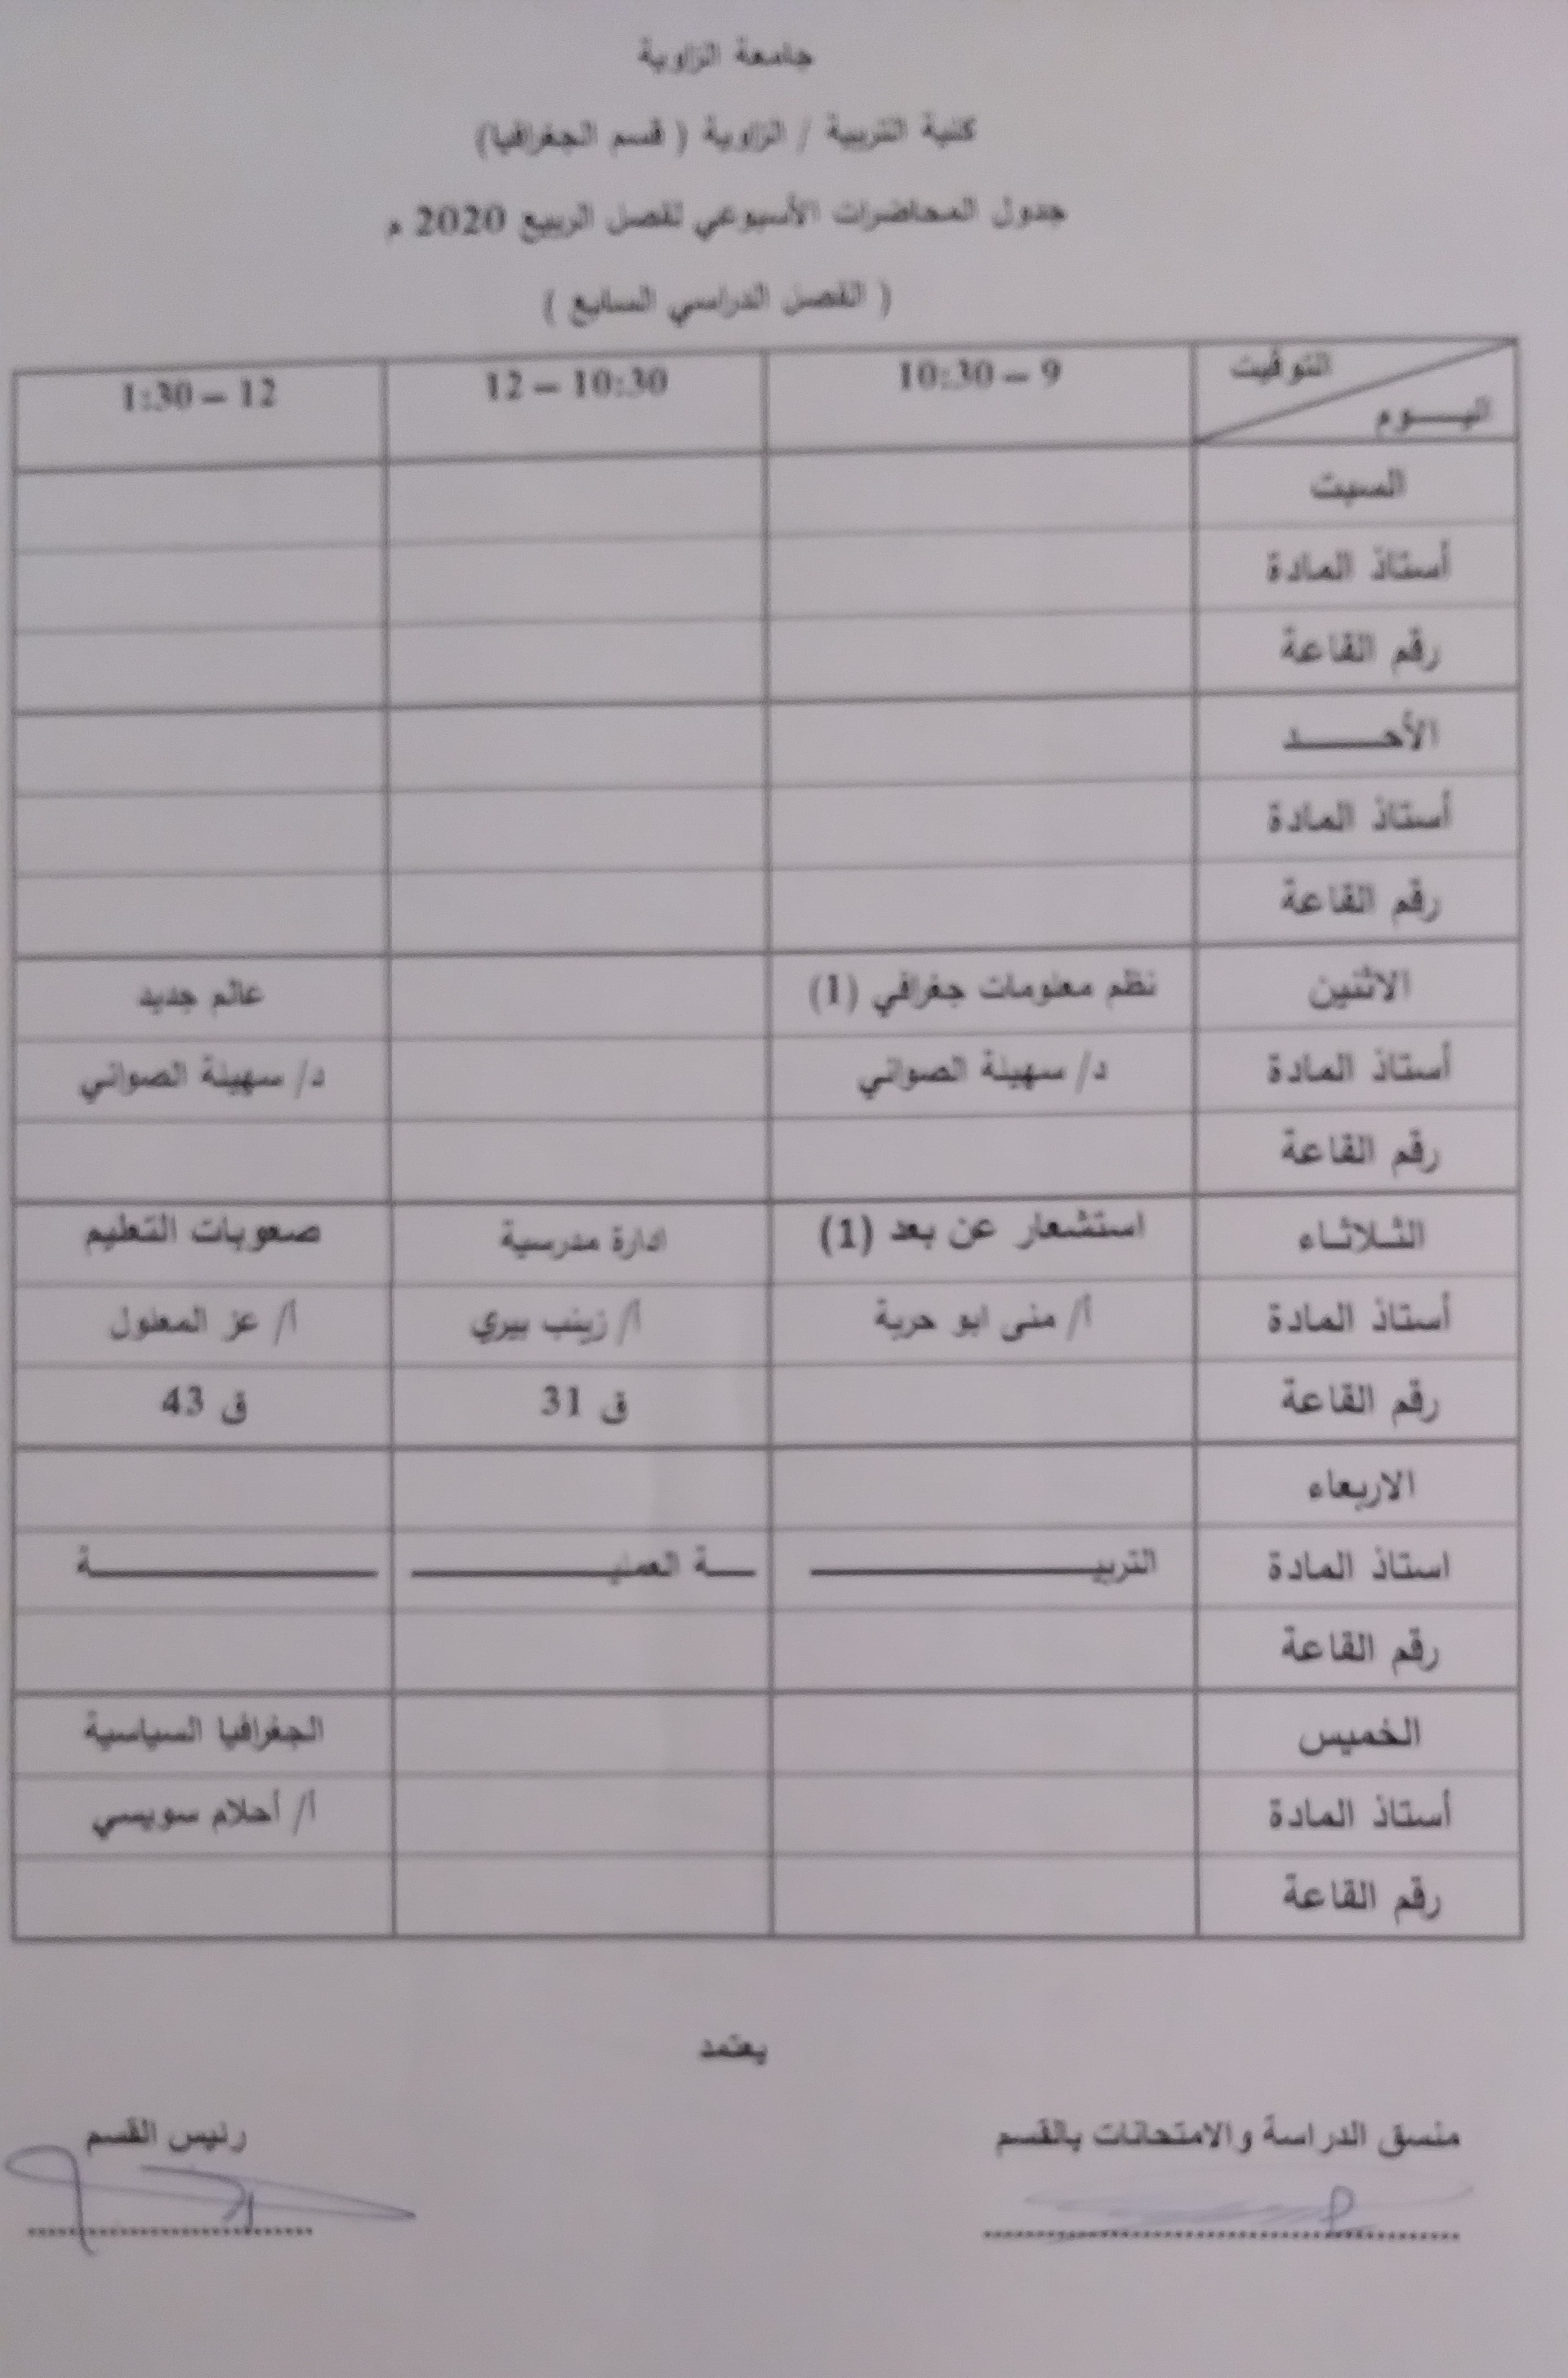 جامعة الزاوية
كلية التربية / الزاوية ( قسم الجغرافيا)
جدول المحاضرات الأسبوعي لفصل الربيع 2020 م
( الفصل الدراسي السابع )
التوقيت
اليـــــوم
9 – 10:30
10:30 – 12
12 – 1:30
السبت
أستاذ المادة
رقم القاعة
الأحــــــد
أستاذ المادة
رقم القاعة
الاثنين
نظم معلومات جغرافي (1)
عالم جديد
أستاذ المادة
د/ سهيلة الصواني
د/ سهيلة الصواني
رقم القاعة
الثـلاثـاء
استشعار عن بعد (1)
ادارة مدرسية
صعوبات التعليم
أستاذ المادة
أ/ منى ابو حرية
أ/ زينب بيري
أ/ عز المعلول
رقم القاعة
ق 31
ق 43
الاربعاء
استاذ المادة
التربيــــــــــــــــــــــــــة العمليــــــــــــــــــــــــــــــــــــــــة
رقم القاعة
الخميس
الجغرافيا السياسية
أستاذ المادة
أ/ أحلام سويسي
رقم القاعة
يعتمد
منسق الدراسة والامتحانات بالقسم
رئيس القسم